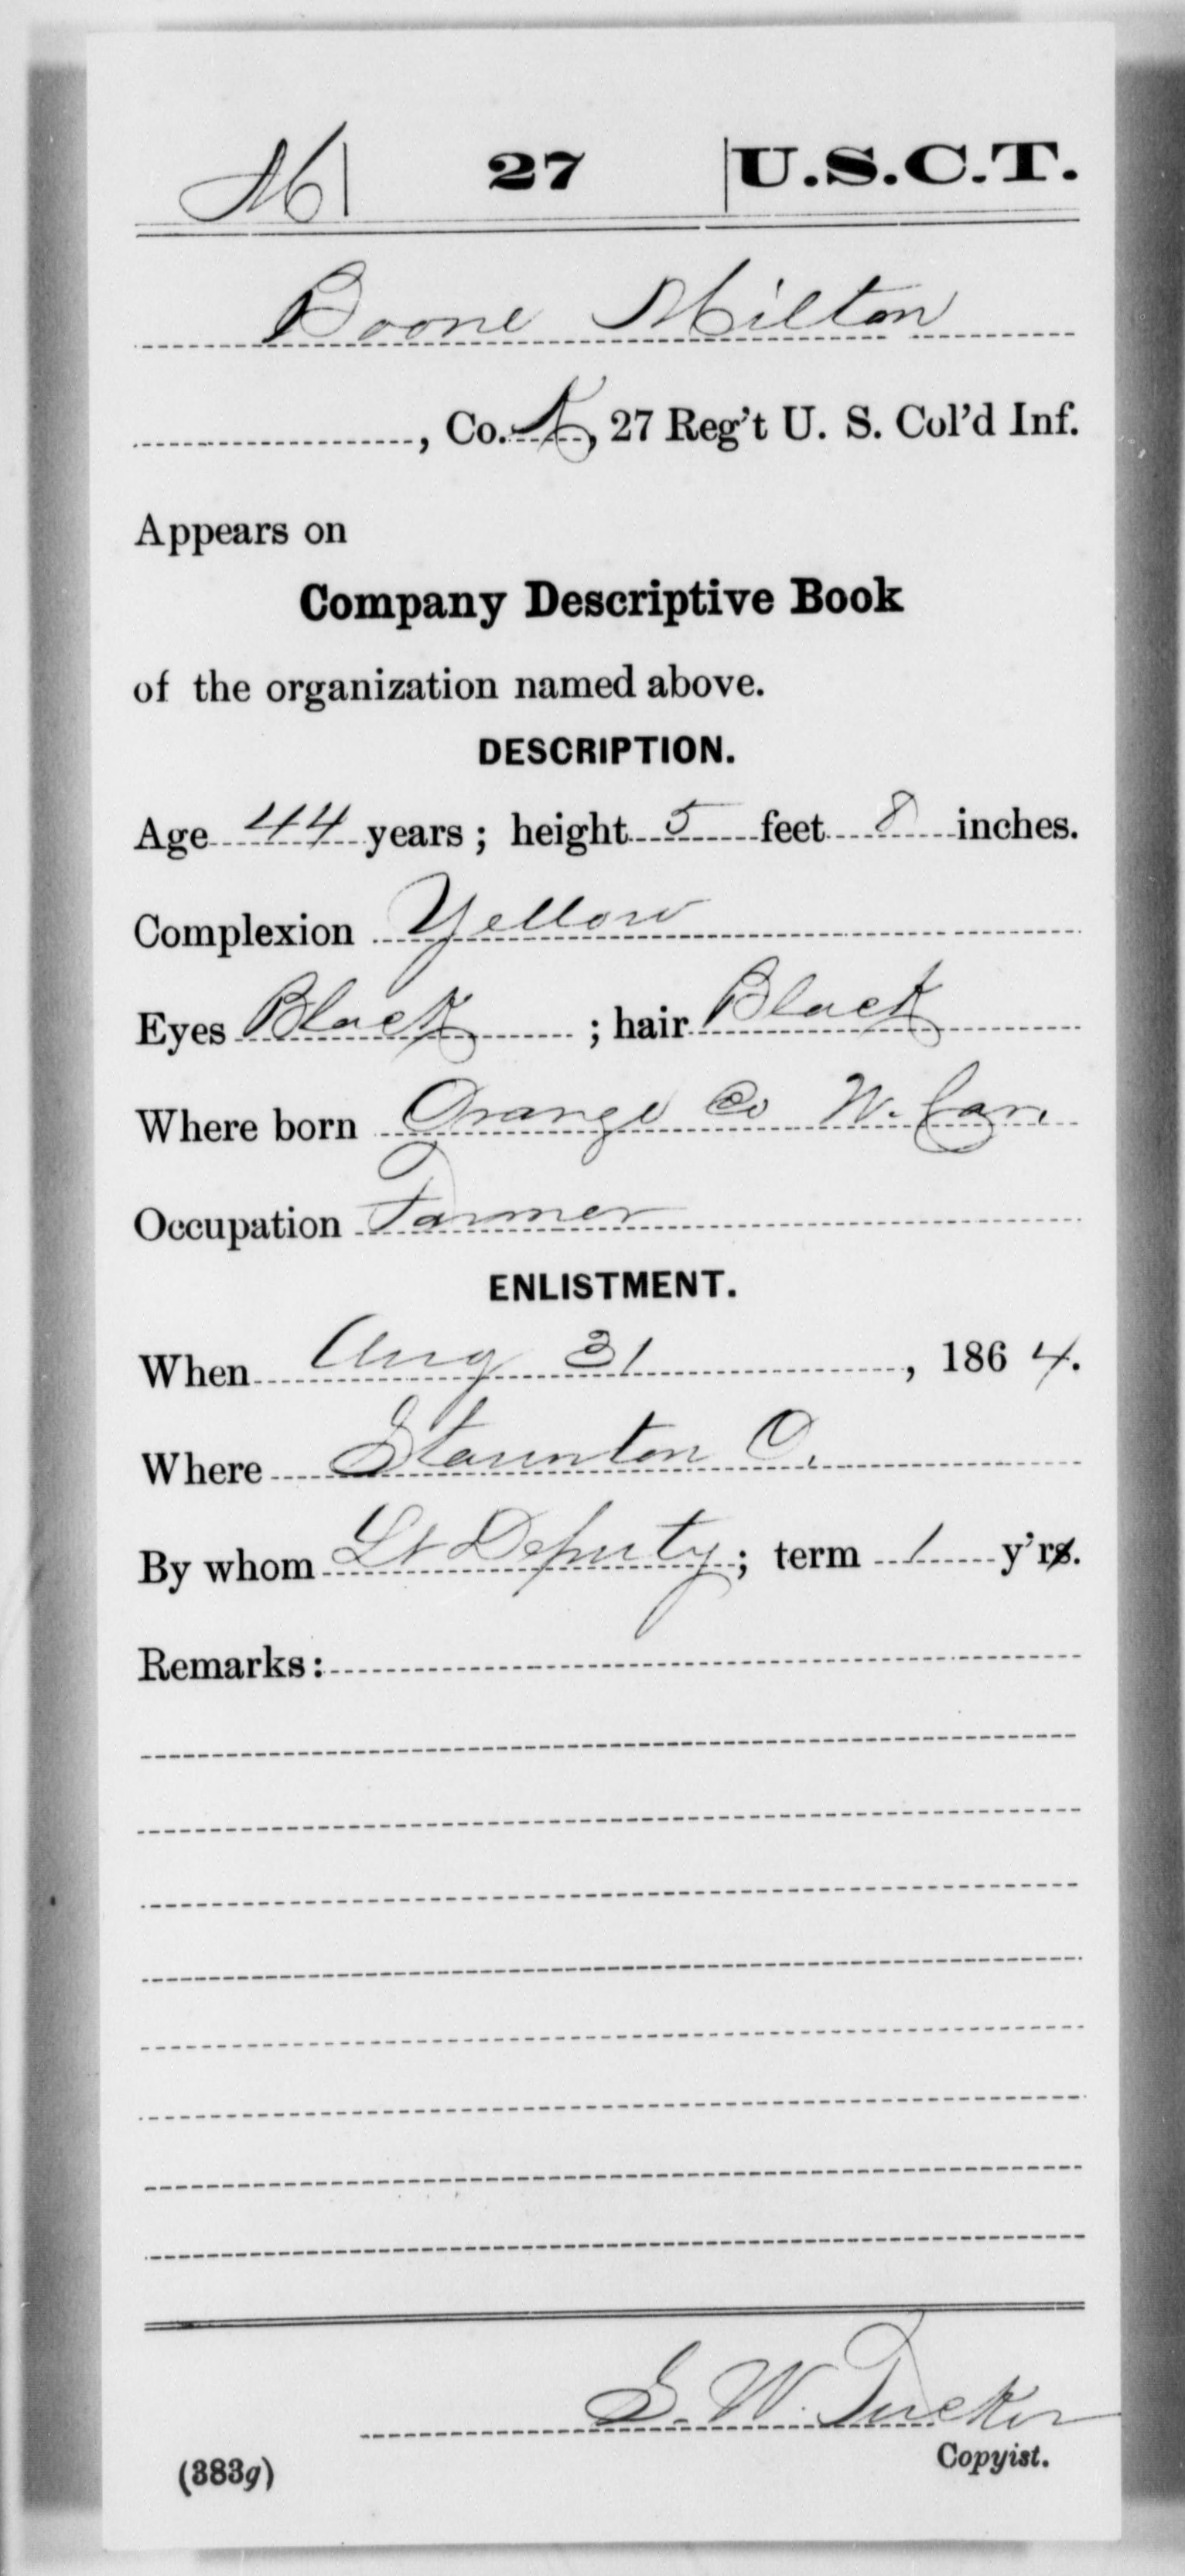 M | 27 | U.S.C.T.
Boone Milton
, Co. K, 27 Reg't U. S. Col'd Inf.
Appears on
Company Descriptive Book
of the organization named above.
DESCRIPTION.
Age 44 years; height 5 feet 8 inches.
Complexion Yellow
Eyes Black ; hair Black
Where born Orange Co N. Car.
Occupation Farmer
ENLISTMENT.
When Aug 31, 1864.
Where Staunton O.
By whom Lt Deputy; term 1 y'rs.
Remarks:
G. W. Tucker
Copyist.
(383g)